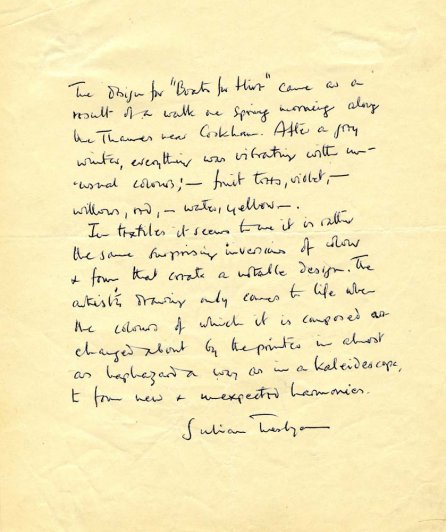 The design for "Boats for Hire" came as a
result of a walk one Spring morning along
the Thames near Cookham. After a grey
winter, everything was vibrating with un-
-usual colours; — fruit trees, violet, —
willows, red, — water, yellow —.
In textiles it seems to me it is rather
the same surprising inversions of colour
& form that create a notable design. The
artist's drawing only comes to life when
the colours of which it is composed are
changed about by the printer in almost
as haphazard a way as in a kaleidescope,
to form new & unexpected harmonies.
Julian Trevelyan